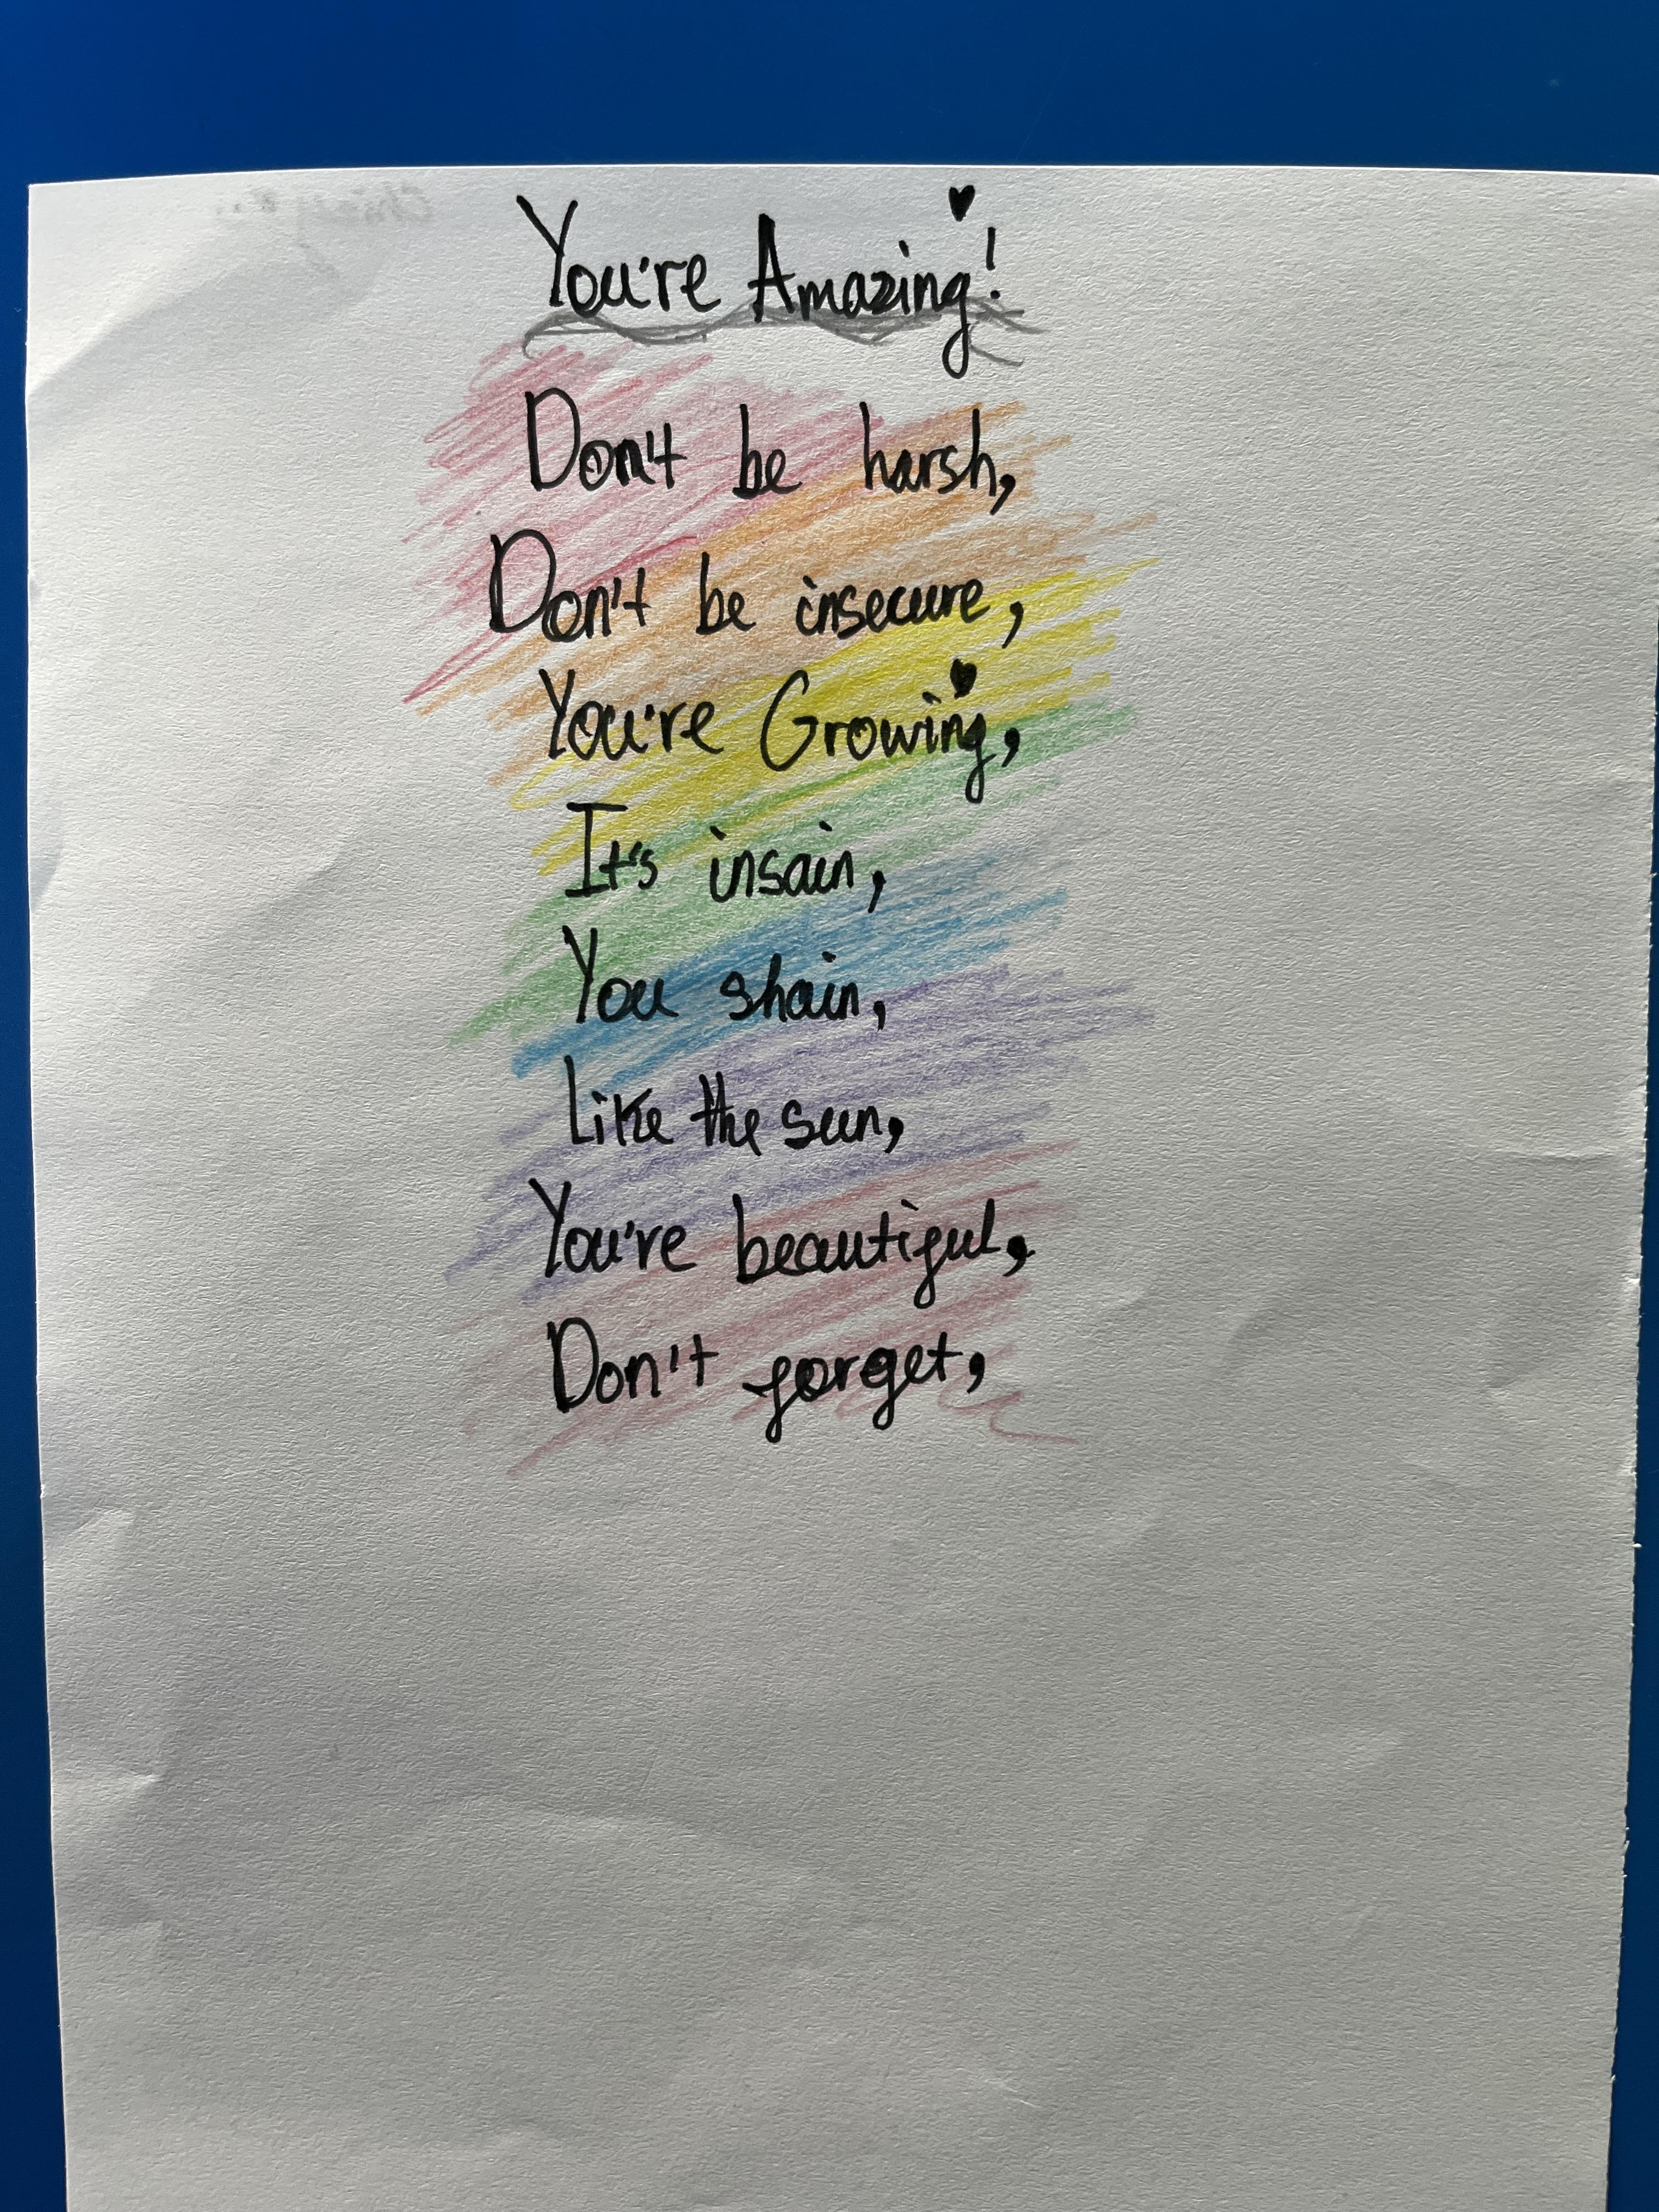 You're Amazing!
Don't be harsh,
Don't be insecure,
You're Growing,
It's insain,
You shain,
Like the sun,
You're beautiful,
Don't forget,